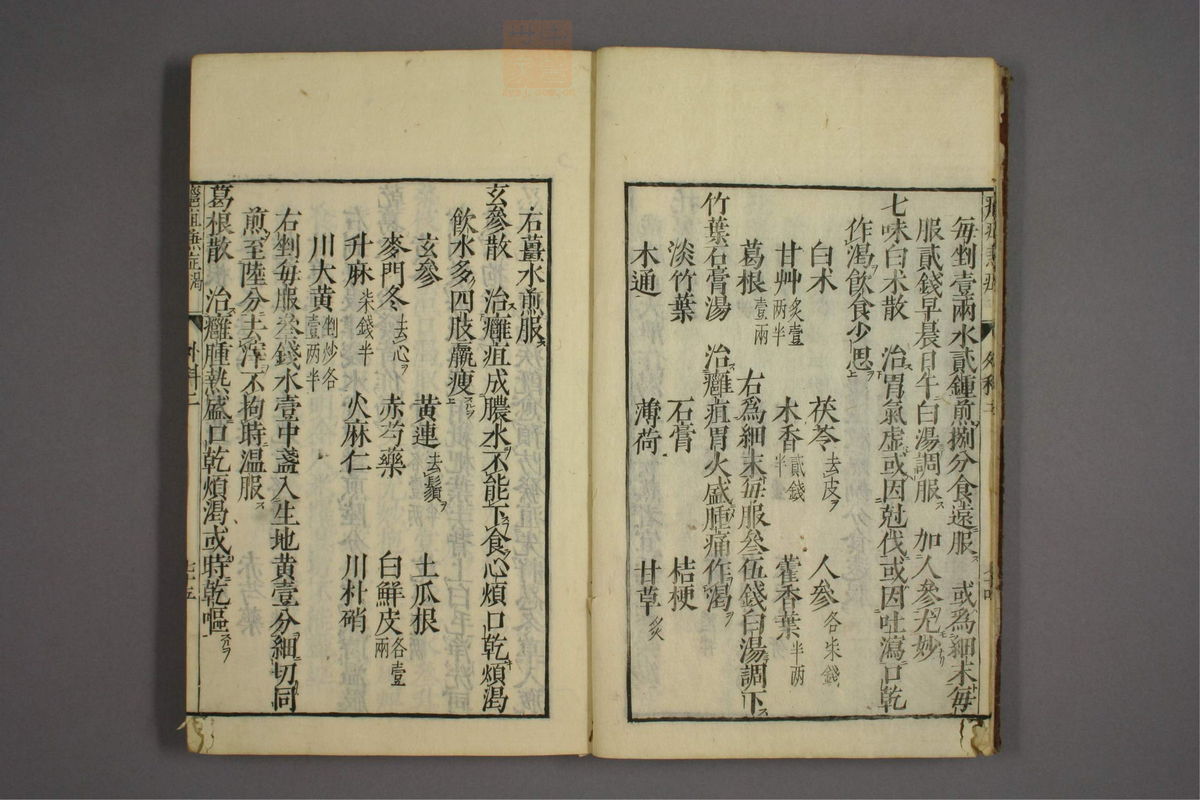 每剉壹兩水貳鍾煎捌分食遠服　或爲細末每
服貳錢早晨日午白湯調服　加人參尤妙
七味白术散　治胃氣虛或因尅伐或因吐瀉口乾
作渴飲食少思
白术　茯苓去皮ヲ　人參各柒錢
甘艸炙壹两半　木香貳錢半　藿香葉半两
葛根壹兩　右爲細末每服叄伍錢白湯調下
竹葉石膏湯　治癰疽胃火盛腫痛作渴
淡竹葉　石膏　桔梗
木通　薄荷　甘草炙
右薑水煎服
玄參散　治癰疽成膿水不能下食心煩口乾煩渴
飲水多四肢羸瘦
玄參　黄連去鬚ヲ　土瓜根
麥門冬去心ヲ　赤芍藥　白鮮皮各壹兩
升麻柒錢半　火麻仁　川朴硝
川大黄剉炒各壹两半
右剉每服叄錢水壹中盞入生地黄壹分細切同
煎至陸分去滓不拘時温服
葛根散　治癰腫熱盛口乾煩渴或時乾嘔
外科二